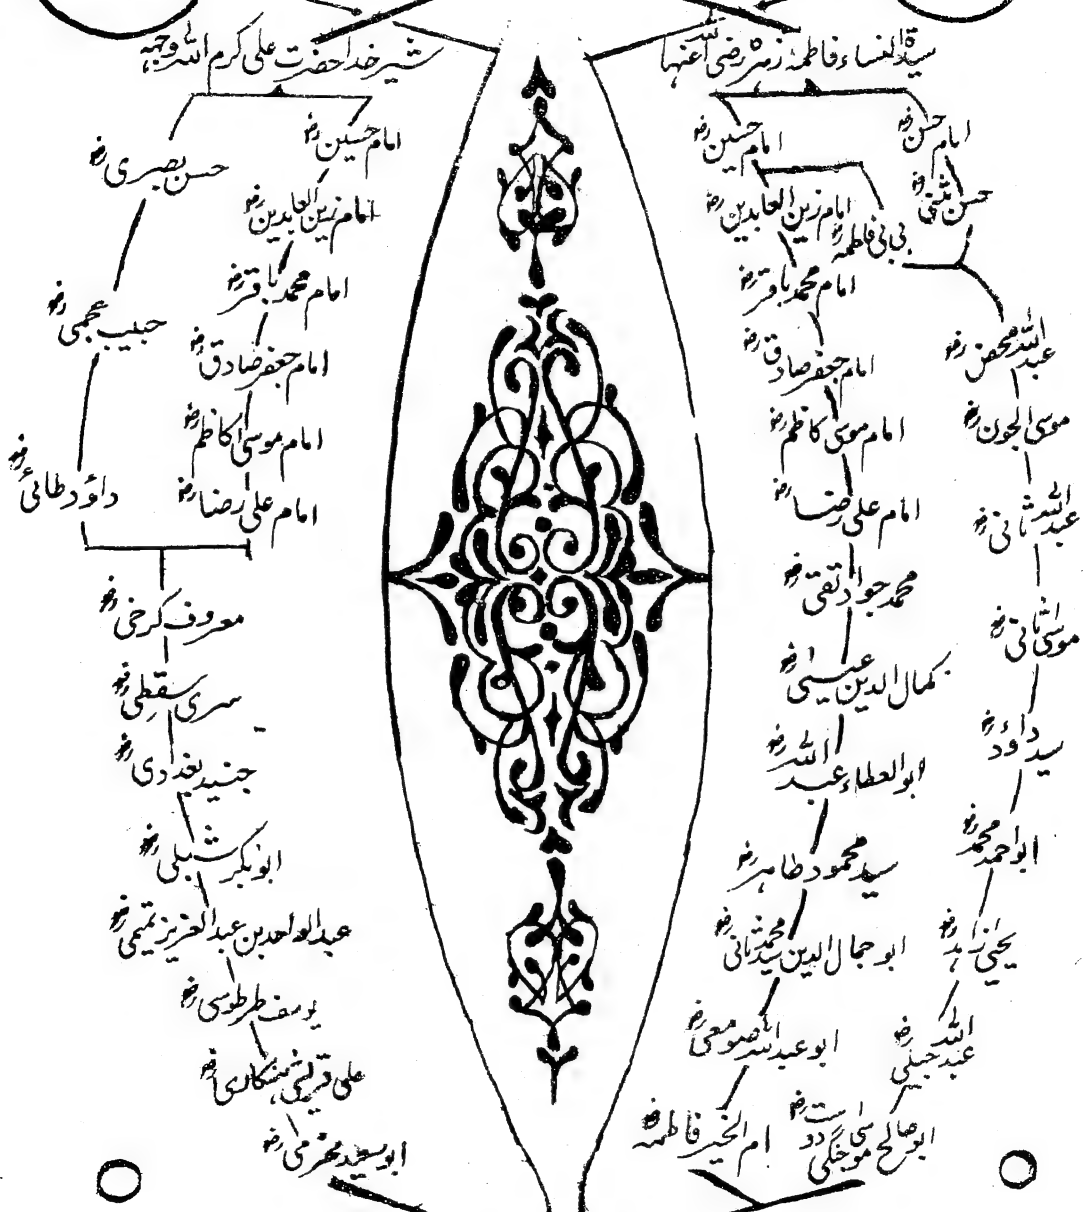 سیدۃ النساء فاطمہ زہرؓ رضی اللہ عنہا
امام حسنؓ
حسن مثنیؓ
امام حسینؓ
بی بی فاطمہؓ
عبد اللہ محضؓ
موسی الجونؓ
عبد اللہ ثانیؓ
موسیٰ ثانیؓ
سید داؤدؓ
ابو احمد محمدؓ
یحییٰ زاہدؓ
عبد اللہ جیلیؓ
ابو صالح موسیٰ جنگی دوستؓ
امام زین العابدینؓ
امام محمد باقرؓ
امام جعفر صادقؓ
امام موسیٰ کاظمؓ
امام علی رضاؓ
محمد جواد تقیؓ
کمال الدین عیسیٰؓ
ابو العطاء عبد اللہؓ
سید محمود طاہرؓ
ابو جمال الدین سید محمد ثانیؓ
ابو عبد اللہ صومعیؓ
ام الخیر فاطمہؓ
شیر خدا حضرت علی کرم اللہ وجہہ
امام حسینؓ
امام زین العابدینؓ
امام محمد باقرؓ
امام جعفر صادقؓ
امام موسیٰ کاظمؓ
امام علی رضاؓ
حسن بصریؓ
حبیب عجمیؓ
داؤد طائیؓ
معروف کرخیؓ
سری سقطیؓ
جنید بغدادیؓ
ابو بکر شبلیؓ
عبد الواحد بن عبد العزیز تمیمیؓ
یوسف طرطوسیؓ
علی قریشی ہنکاریؓ
ابو سعید مخزمیؓ